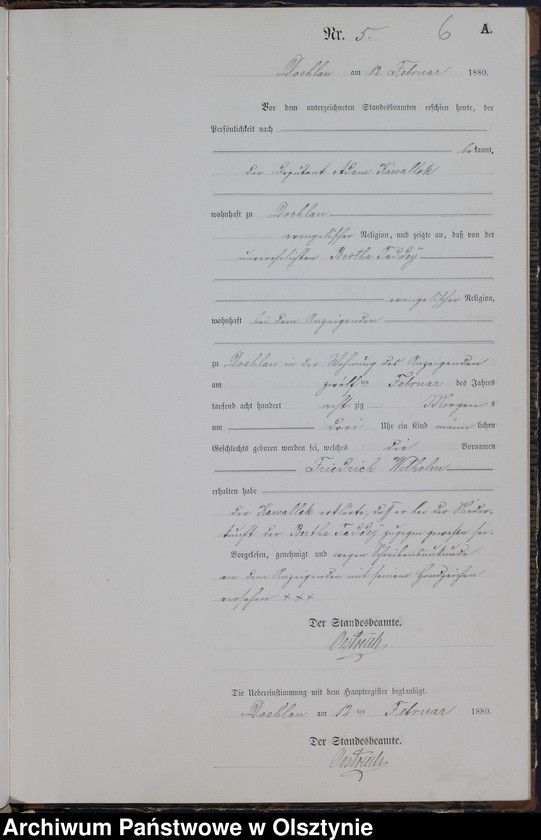 Nr. 5. 6 A.
Doehlau am 12 Februar 1880.
Vor dem unterzeichneten Standesbeamten erschien heute, der
Persönlichkeit nach
bekannt,
der Deputant Adam Kawallek
wohnhaft zu Doehlau
evangelischer Religion, und zeigte an, daß von der
unverehelichten Bertha Taddey
evangelischer Religion,
wohnhaft bei dem Anzeigenden
zu Doehlau in der Wohnung des Anzeigenden
am zwölf ten Februar des Jahres
tausend acht hundert acht zig Morgens
um drei Uhr ein Kind männlichen
Geschlechts geboren worden sei, welches die Vornamen
Friedrich Wilhelm
erhalten habe
der Kawallek erklärte, daß er bei der Nieder-
kunft der Bertha Taddey zugegen gewesen sei.
Vorgelesen, genehmigt und wegen Schreibensunkunde
von dem Anzeigenden mit seinem Handzeichen
versehen + + +
Der Standesbeamte.
Oestreich
Die Uebereinstimmung mit dem Hauptregister beglaubigt.
Doehlau am 12 ten Februar 1880.
Der Standesbeamte.
Oestreich
Archiwum Państwowe w Olsztynie